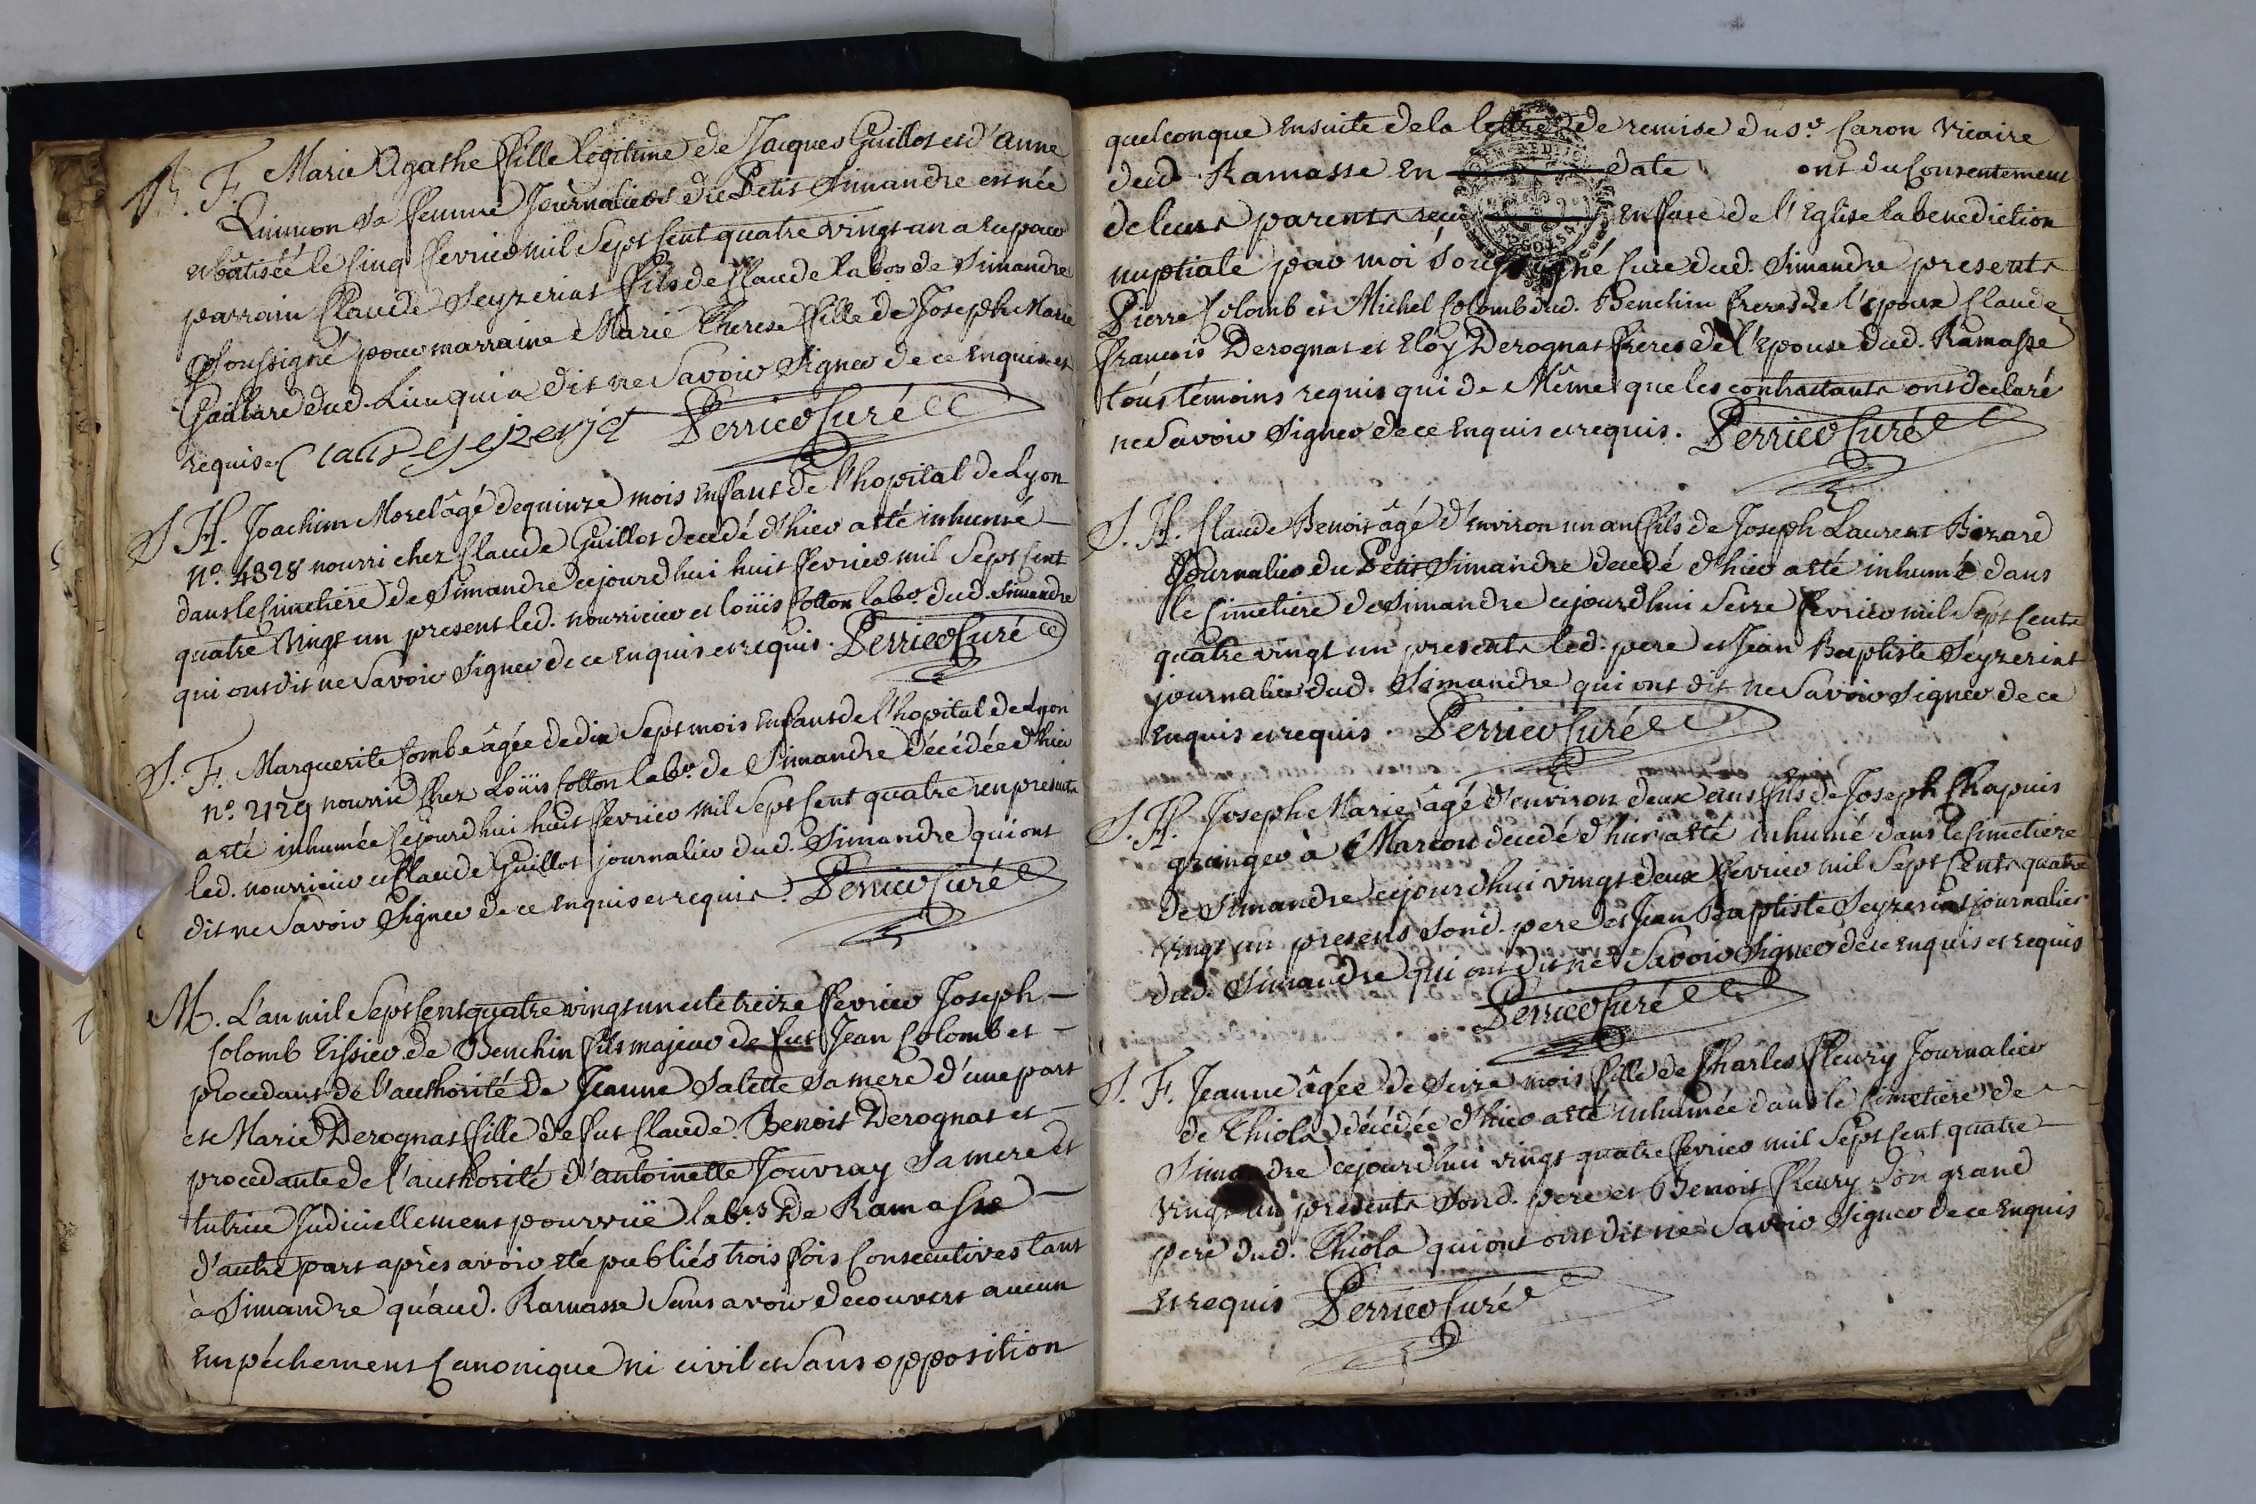 B. F. Marie Agathe fille legitime de Jacques Guillot et d'anne
sa femme Journaliers du Petit Simandre est née
et bâtisée le cinq fevrier mil sept cent quatre vingt un a eu pour
parrain Claude Seyzeriat fils de Claude labor de Simandre
soussigné pour marraine Marie Therese fille de Joseph Marie
Gaillard dud. Lieu qui a dit ne savoir signer de ce enquise et
requise Perrier Curé
S. H. Joachim Morel âgé de quinze mois enfant de l'hopital de Lyon
n°. 4328 nourri chez Claude Guillot decedé d'hier a êté inhumé
dans le Cimetiere de Simandre cejourdhui huit fevrier mil sept cent
quatre vingt un present led. nourricier et loüis Cotton labr. dud. Simandre
qui ont dit ne savoir signer de ce enquis et requis. Perrier Curé
S. F. Marguerite Combe âgée de dix sept mois enfant de l'hopital de Lyon
n°. 2129 nourrie chez Loüis Cotton labr. de Simandre décédée d'hier
a êté inhumée cejourdhui huit fevrier mil sept cent quatre un presents
led. nourricier et Claude Guillot journalier dud. Simandre qui ont
dit ne savoir signer de ce enquis et requis. Perrier Curé
M. L'an mil sept cent quatre vingt un et le treize fevrier Joseph
Colomb Tissier de Benchin fils majeur de fut Jean Colomb et
procedant de l'authorité de Jeanne Salette sa mere d'une part
et Marie Derognat fille de fut Claude Benoit Derognat et
procedante de l'authorité d'antoinette Jouvray sa mere et
tutrice Judiciellement pourvuë labrs de Ramasse
d'autre part après avoir êté publiés trois fois Consecutives tant
à Simandre qu'aud. Ramasse sans avoir decouvert aucun
Empéchement Canonique ni civil et sans opposition
quelconque ensuite de la lettre de remise du sr. Caron Vicaire
dud. Ramasse en date ont du Consentement
de leurs parents recu en face de l'Eglise la benediction
nuptiale par moi soussigné Curé dud. Simandre presents
Pierre Colomb et Michel Colomb dud. Benchin freres de l'epoux Claude
francois Derognat et Eloy Derognat freres de l'epouse dud. Ramasse
tous témoins requis qui de Même que les contractants ont declaré
ne savoir signer de ce enquis et requis. Perrier Curé
S. H. Claude Benoit âgé d'environ un an fils de Joseph Laurent
Journalier du Petit Simandre decedé d'hier a êté inhumé dans
le Cimetiere de Simandre cejourdhui seize fevrier mil sept cents
quatre vingt un presents led. pere et Jean Baptiste Seyzeriat
journalier dud. Simandre qui ont dit ne savoir signer de ce
enquis et requis. Perrier Curé
S. H. Joseph Marie âgé d'environ deux ans fils de Joseph Chapuis
granger à decedé d'hier a êté inhumé dans le Cimetiere
de Simandre cejourdhui vingt deux fevrier mil sept Cents quatre
vingt un presens sond. pere et Jean Baptiste Seyzeriat journalier
dud. Simandre qui ont dit ne savoir signer de ce enquis et requis
Perrier Curé
S. F. Jeanne âgée de seize mois fille de Charles Fleury Journalier
de Thiola décédée d'hier a êté inhumée dans le Cimetiere de
Simandre cejourdhui vingt quatre fevrier mil sept cent quatre
vingt un presents sond. pere et Benoit Fleury son grand
pere dud. Thiola qui ont ont dit ne savoir signer de ce enquis
et requis Perrier Curé